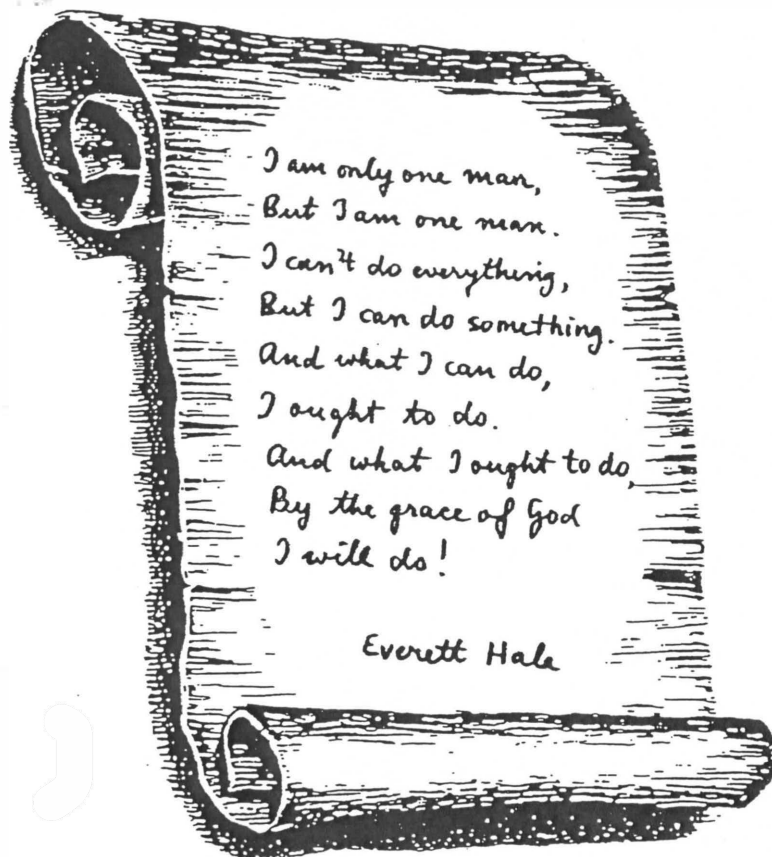 I am only one man,
But I am one man.
I can't do everything,
But I can do something.
And what I can do,
I ought to do.
And what I ought to do,
By the grace of God
I will do!
Everett Hale